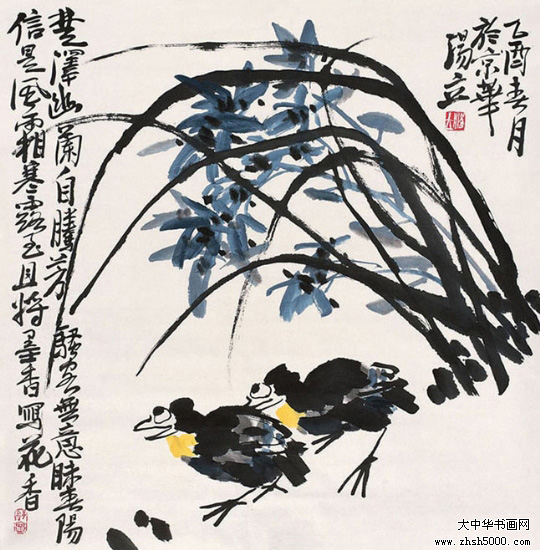 乙酉春月
於京華
湯立
楚澤幽蘭自騰芳騷客無意春陽
信是風霜寒露至且將墨香寫花香
大中华书画网
www.zhsh5000.com